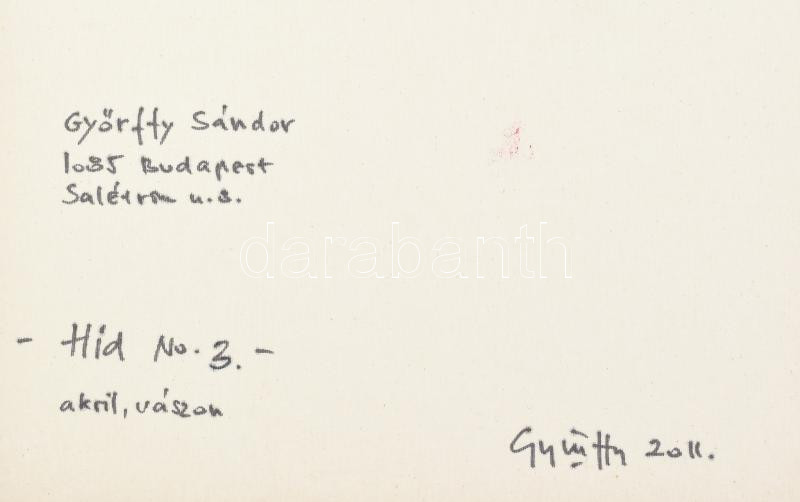 Győrffy Sándor
1085 Budapest
Salétrom u. 8.
darabanth
- Híd No. 3. -
akril, vászon
Győrffy 2011.